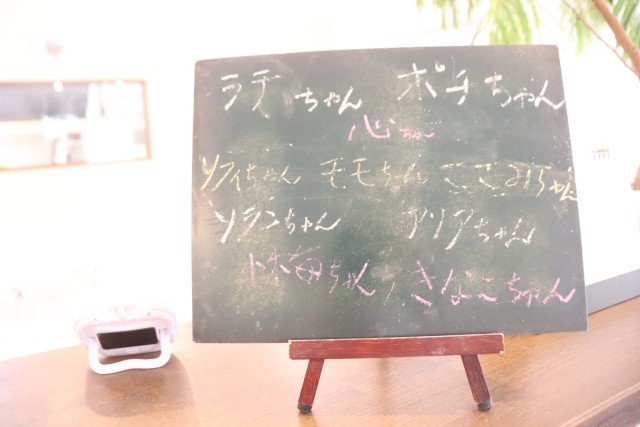 ラテちゃん ポチちゃん
心ちゃん
ソフィちゃん モモちゃん ここみちゃん
ソランちゃん アリアちゃん
小梅ちゃん きなこちゃん